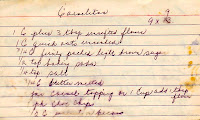 Carmelitas
9 x
1 C plus 3 tbsp unsifted flour
1 C quick oats uncooked
3/4 C firmly packed light brown sugar
1/2 tsp baking soda
1/4 tsp salt
3/4 C butter melted
for Caramel topping 1 Cup 3 tbsp flour
1 pkg choc chips
1/2 C pecans